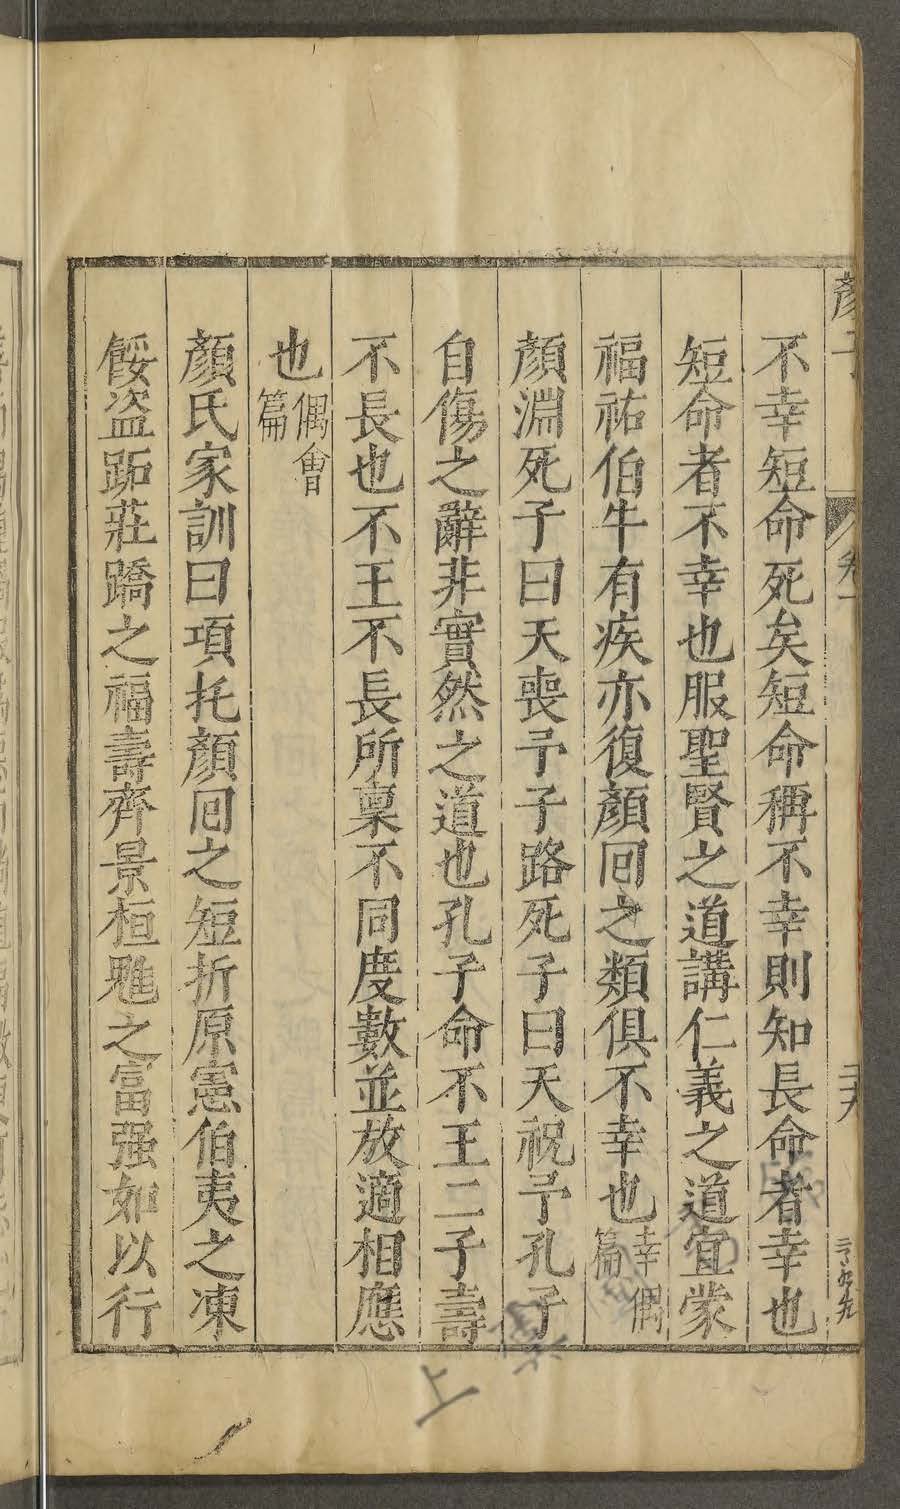 不幸短命死矣短命稱不幸則知長命者幸也
短命者不幸也服聖賢之道講仁義之道宜蒙
福祐伯牛有疾亦復顏回之類俱不幸也幸偶篇
顏淵死子曰天喪予子路死子曰天祝予孔子
自傷之辭非實然之道也孔子命不王二子壽
不長也不王不長所稟不同度數並放適相應
也偶會篇
顏氏家訓曰項托顏回之短折原憲伯夷之凍
餒盜跖莊蹻之福壽齊景桓魋之富强如以行